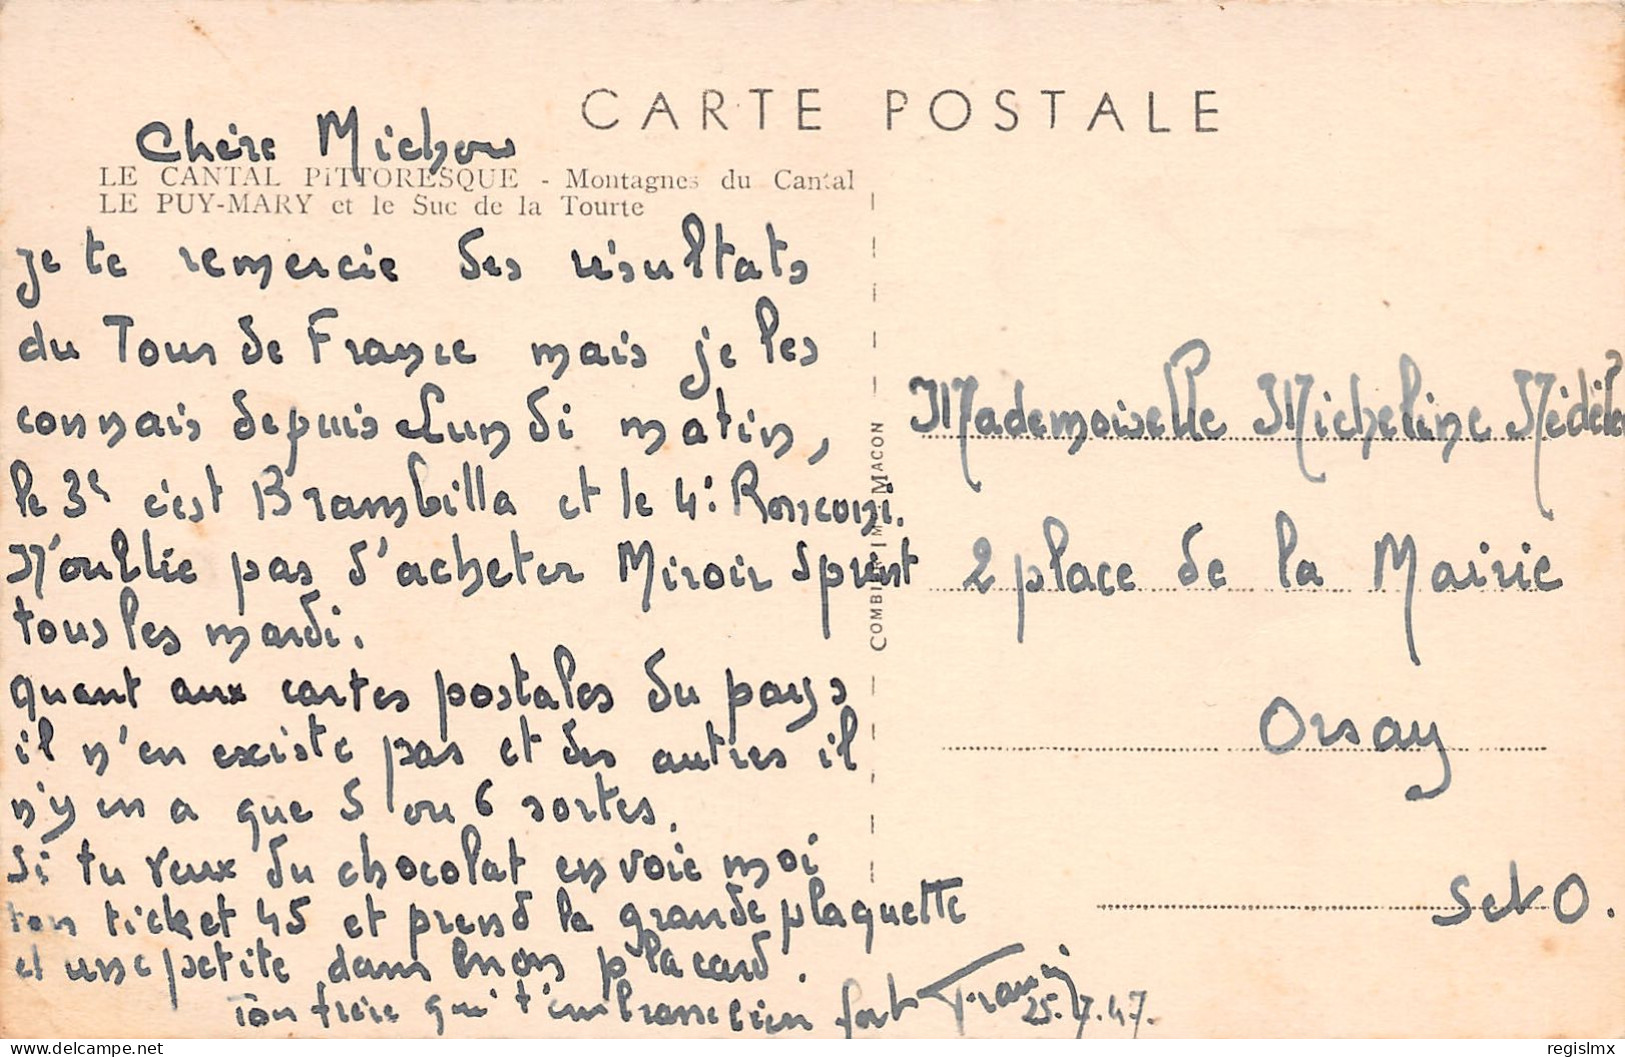 CARTE POSTALE
Chère Michou
LE CANTAL PITTORESQUE - Montagnes du Cantal
LE PUY-MARY et le Suc de la Tourte
je te remercie des résultats
du Tour de France mais je les
connais depuis Lundi matin,
le 3e c'est Brambilla et le 4e Ronconi.
N'oublie pas d'acheter Miroir Sprint
tous les mardi.
quant aux cartes postales du pays
il n'en existe pas et des autres il
n'y en a que 5 ou 6 sortes.
Si tu veux du chocolat envoie moi
ton ticket 45 et prend la grande plaquette
et une petite dans mon placard.
Ton frère qui t'embrasse bien fort
25.7.47.
COMBIER IMP. MACON
Mademoiselle Micheline
2 place de la Mairie
Orsay
S et O.
delcampe.net
regislmx